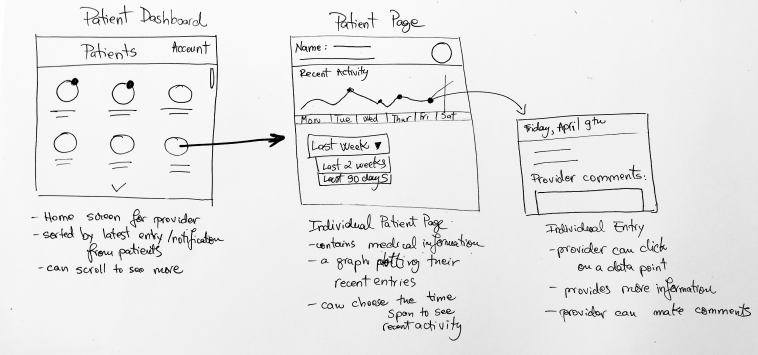 Patient Dashboard
Patients Account
- Home screen for provider
- sorted by latest entry/notification
from patients
- can scroll to see more
Patient Page
Name:
Recent Activity
Mon Tue Wed Thur Fri Sat
Last week ▼
Last 2 weeks
Last 90 days
Individual Patient Page
- contains medical information
- a graph plotting their
recent entries
- can choose the time
span to see
recent activity
Friday, April 9th
Provider comments:
Individual Entry
- provider can click
on a data point
- provides more information
- provider can make comments